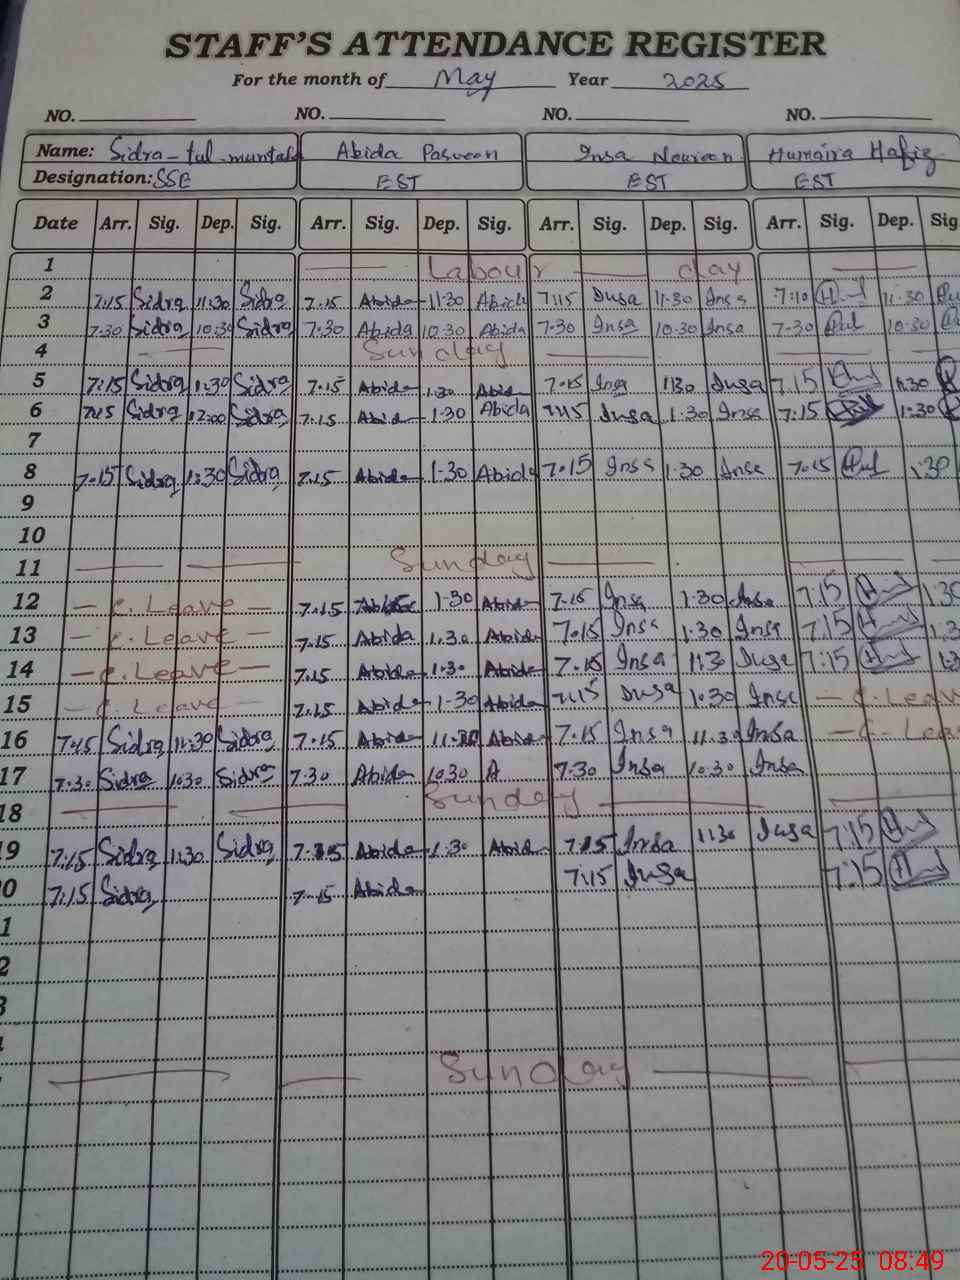 STAFF'S ATTENDANCE REGISTER
For the month of May Year 2025
NO. NO. NO. NO.
Name: Sidra-tul-muntaha Abida Parveen Insa Noureen Humaira Hafiz
Designation: SSE EST EST EST
Date Arr. Sig. Dep. Sig. Arr. Sig. Dep. Sig. Arr. Sig. Dep. Sig. Arr. Sig. Dep. Sig
1 Labour day
2 7:15 Sidra 11:30 Sidra 7.15 Abida 11.30 Abida 7:15 Insa 11.30 Insa 7:10 11:30
3 7.30 Sidra 10:30 Sidra 7.30 Abida 10.30 Abida 7.30 Insa 10.30 Insa 7.30 10.30
4 Sunday
5 7:15 Sidra 1:30 Sidra 7.15 Abida 1.30 Abida 7.15 Insa 1:30 Insa 7.15 1:30
6 7:15 Sidra 12:00 Sidra 7.15 Abida 1.30 Abida 7:15 Insa 1.30 Insa 7:15 1:30
7
8 7.15 Sidra 1:30 Sidra 7.15 Abida 1.30 Abida 7.15 Insa 1.30 Insa 7.15 1:30
9
10
11 Sunday
12 - C. Leave - 7.15 Abida 1.30 Abida 7.15 Insa 1:30 Insa 7:15 1:30
13 - C. Leave - 7.15 Abida 1.30 Abida 7.15 Insa 1.30 Insa 7:15 1:3
14 - C. Leave - 7.15 Abida 1.30 Abida 7.15 Insa 1:3 Insa 7:15 1:3
15 - C. Leave - 7.15 Abida 1.30 Abida 7:15 Insa 1:30 Insa - C. Leav
16 7:15 Sidra 11:30 Sidra 7.15 Abida 11.30 Abida 7.15 Insa 11.30 Insa - C. Leav
17 7.30 Sidra 10:30 Sidra 7.30 Abida 10.30 A 7.30 Insa 10.30 Insa
18 Sunday
9 7:15 Sidra 1:30 Sidra 7.15 Abida 1.30 Abida 7.15 Insa 1:30 Insa 7:15
0 7:15 Sidra 7.15 Abida 7:15 Insa 7:15
1
2
3
Sunday
20-05-25 08:49